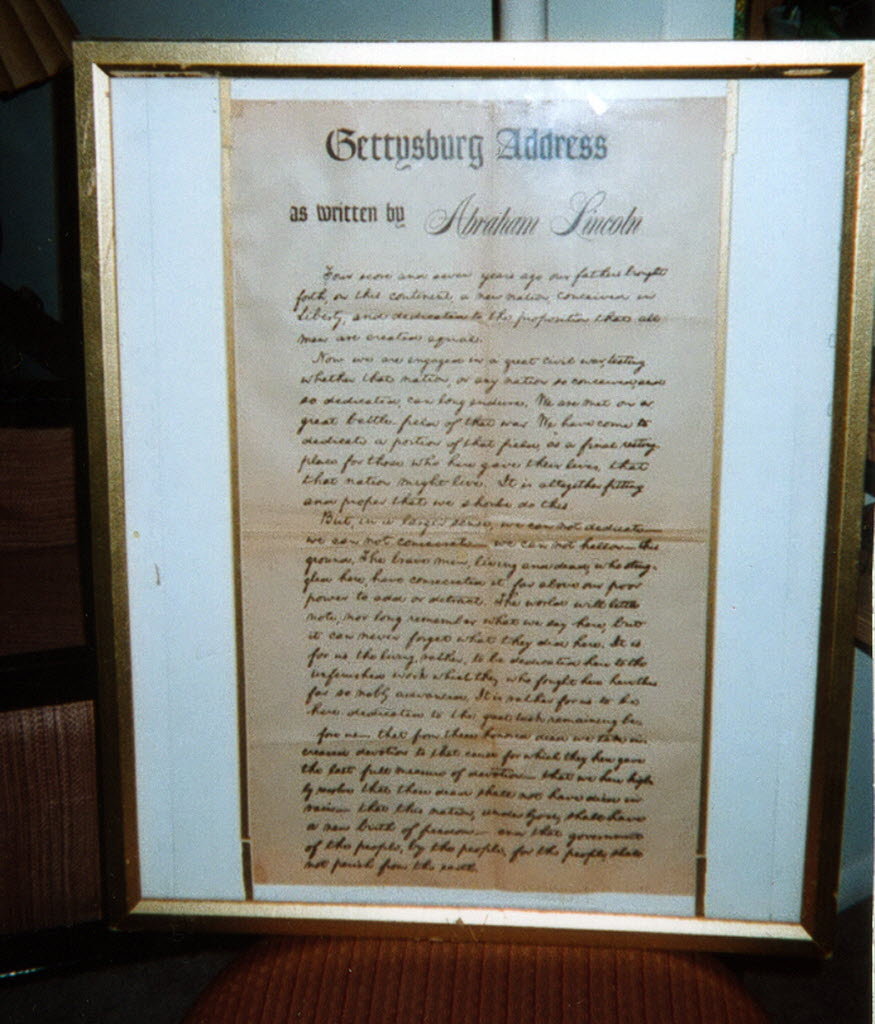 Gettysburg Address
as written by Abraham Lincoln
Four score and seven years ago our fathers brought
forth, on this continent, a new nation, conceived in
Liberty, and dedicated to the proposition that all
men are created equal.
Now we are engaged in a great civil war, testing
whether that nation, or any nation so conceived, and
so dedicated, can long endure. We are met on a
great battle field of that war. We have come to
dedicate a portion of that field, as a final resting
place for those who here gave their lives, that
that nation might live. It is altogether fitting
and proper that we should do this.
But, in a larger sense, we can not dedicate—
we can not consecrate— we can not hallow— this
ground. The brave men, living and dead, who strug-
gled here, have consecrated it, far above our poor
power to add or detract. The world will little
note, nor long remember what we say here, but
it can never forget what they did here. It is
for us the living, rather, to be dedicated here to the
unfinished work which they who fought here have thus
far so nobly advanced. It is rather for us to be
here dedicated to the great task remaining be-
fore us— that from these honored dead we take in-
creased devotion to that cause for which they here gave
the last full measure of devotion— that we here high-
ly resolve that these dead shall not have died in
vain— that this nation, under God, shall have
a new birth of freedom— and that government
of the people, by the people, for the people, shall
not perish from the earth.